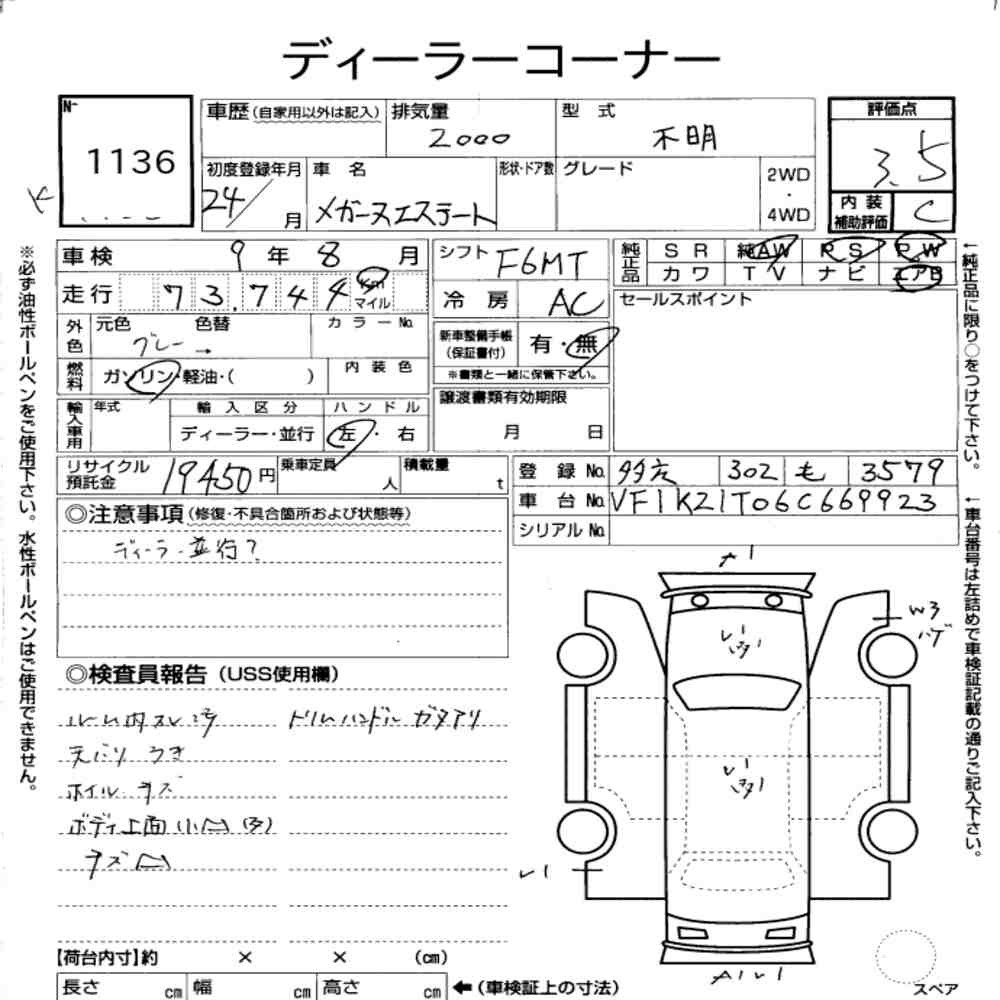 ディーラーコーナー
No. 1136
車歴(自家用以外は記入) 排気量 2000 型式 不明 評価点 3.5
初度登録年月 24/ 月 車名 メガーヌエステート 形状・ドア数 グレード 2WD・4WD
内装補助評価 C
車検 9年 8月 シフト F6MT 純正品 SR 純AW PS PW
走行 73,744 km マイル 冷房 AC カワ TV ナビ エアB
外色 元色 グレー 色替 → カラーNo. 新車整備手帳(保証書付) 有・無 セールスポイント
※書類と一緒に保管下さい。
燃料 ガソリン・軽油・( ) 内装色
譲渡書類有効期限 月 日
輸入車用 年式 輸入区分 ハンドル
ディーラー・並行 左・右
リサイクル預託金 19450円 乗車定員 人 積載量 t 登録No. 多摩 302 も 3579
車台No. VF1KZ1T06C669923
シリアルNo.
◎注意事項(修復・不具合箇所および状態等)
ディーラー・並行?
A1
W3
ハゲ
◎検査員報告(USS使用欄)
ルーム内スレ 汚 ドリムハンドル ガタアリ
天バリ うき
ホイル キズ
ボディ上面 小凹(多)
キズ凹
U1
【荷台内寸】約 × × (cm)
長さ cm 幅 cm 高さ cm ←(車検証上の寸法)
A1U1
スペア
※必ず油性ボールペンをご使用下さい。水性ボールペンはご使用できません。
←純正品に限り○をつけて下さい。
←車台番号は左詰めで車検証記載の通りご記入下さい。